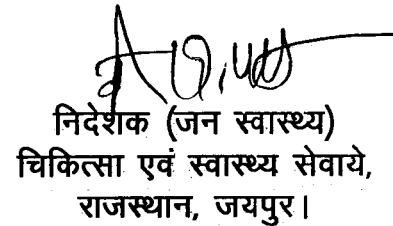 निदेशक (जन स्वास्थ्य)
चिकित्सा एवं स्वास्थ्य सेवाये,
राजस्थान, जयपुर।